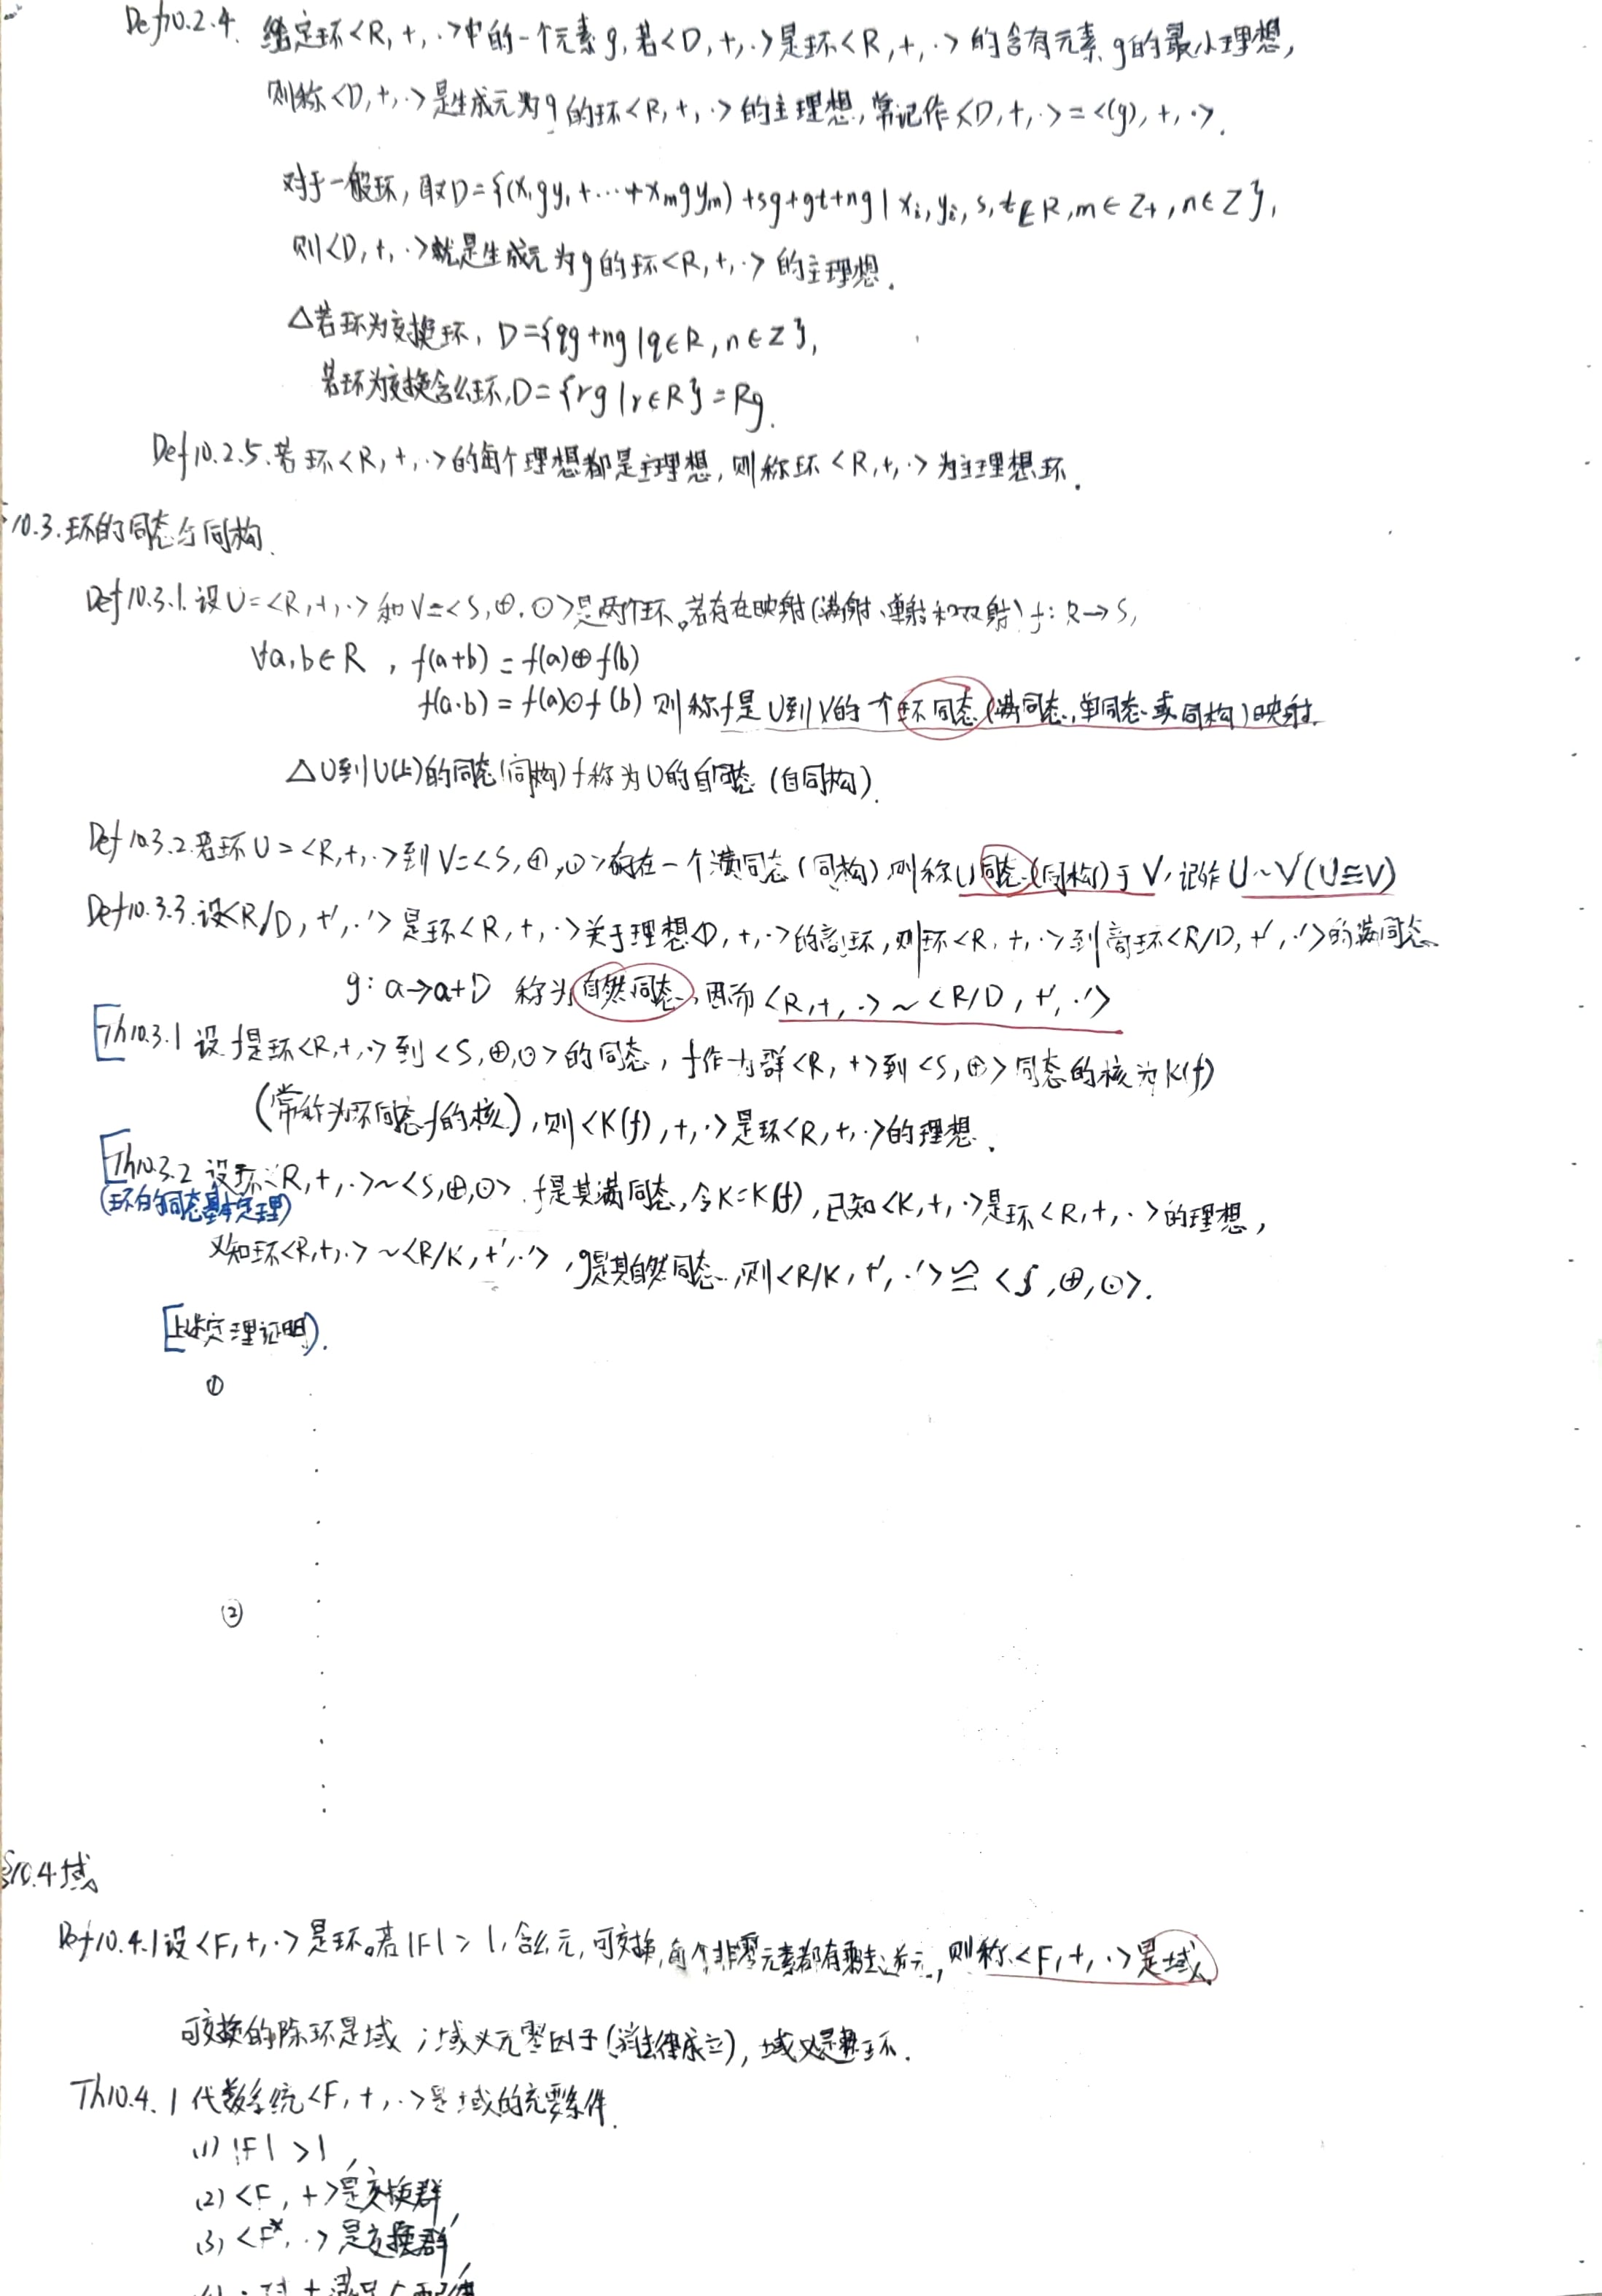 Def10.2.4. 给定环<R, +, ·>中的一个元素g, 若<D, +, ·>是环<R, +, ·>的含有元素g的最小理想,
则称<D, +, ·>是生成元为g的环<R, +, ·>的主理想, 常记作<D, +, ·> = <(g), +, ·>.
对于一般环, 取D={(x₁gy₁+⋯+xₘgyₘ)+sg+gt+ng | xᵢ, yᵢ, s, t∈R, m∈Z+, n∈Z},
则<D, +, ·>就是生成元为g的环<R, +, ·>的主理想.
△若环为交换环, D={qg+ng | q∈R, n∈Z},
若环为交换含幺环, D={rg | r∈R}=Rg.
Def10.2.5. 若环<R, +, ·>的每个理想都是主理想, 则称环<R, +, ·>为主理想环.
10.3. 环的同态与同构.
Def10.3.1. 设U=<R, +, ·>和V=<S, ⊕, ⊙>是两个环。若存在映射(满射、单射和双射) f: R→S,
∀a, b∈R, f(a+b)=f(a)⊕f(b)
f(a·b)=f(a)⊙f(b) 则称f是U到V的一个环同态(满同态, 单同态或同构)映射.
△U到U(上)的同态(同构)f称为U的自同态(自同构).
Def10.3.2. 若环U=<R, +, ·>到V=<S, ⊕, ⊙>存在一个满同态(同构), 则称U同态(同构)于V, 记作U~V(U≅V)
Def10.3.3. 设<R/D, +', ·'>是环<R, +, ·>关于理想<D, +, ·>的商环, 则环<R, +, ·>到商环<R/D, +', ·'>的满同态
g: a→a+D 称为自然同态, 因而<R, +, ·> ~ <R/D, +', ·'>
[Th10.3.1 设f是环<R, +, ·>到<S, ⊕, ⊙>的同态, f作为群<R, +>到<S, ⊕>同态的核为K(f)
(常称为环同态f的核), 则<K(f), +, ·>是环<R, +, ·>的理想.
[Th10.3.2 设环<R, +, ·>~<S, ⊕, ⊙>, f是其满同态, 令K=K(f), 已知<K, +, ·>是环<R, +, ·>的理想,
(环的同态基本定理)
又知环<R, +, ·>~<R/K, +', ·'>, g是其自然同态, 则<R/K, +', ·'> ≅ <S, ⊕, ⊙>.
[上述定理证明].
①
②
§10.4 域
Def10.4.1 设<F, +, ·>是环。若|F|>1, 含幺元, 可交换, 每个非零元素都有乘法逆元, 则称<F, +, ·>是域.
可交换的除环是域; 域又无零因子(消去律成立), 域又是整环.
Th10.4.1 代数系统<F, +, ·>是域的充要条件.
(1) |F|>1,
(2) <F, +>是交换群,
(3) <F*, ·>是交换群,